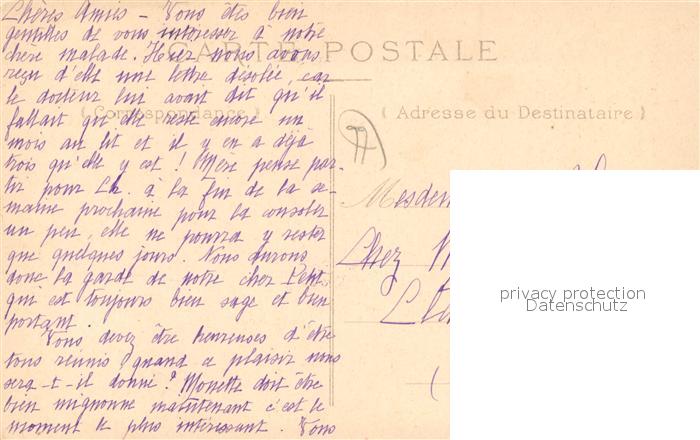 Chères Amies – Vous êtes bien
gentilles de vous intéresser à notre
chère malade. Hier nous avons
reçu d'elle une lettre désolée, car
le docteur lui avait dit qu'il
fallait qu'elle reste encore un
mois au lit et il y en a déjà
trois qu'elle y est ! Mère pense par-
tir pour Ch. à la fin de la se-
maine prochaine pour la consoler
un peu, elle ne pourra y rester
que quelques jours. Nous aurons
donc la garde de notre cher Petit
qui est toujours bien sage et bien
portant.
Vous devez être heureuses d'être
tous réunis, quand ce plaisir nous
sera-t-il donné ? Monette doit être
bien mignonne maintenant c'est le
moment le plus intéressant. Vous
CARTE POSTALE
( Correspondance )
( Adresse du Destinataire )
Mesdem
Chez
privacy protection
Datenschutz